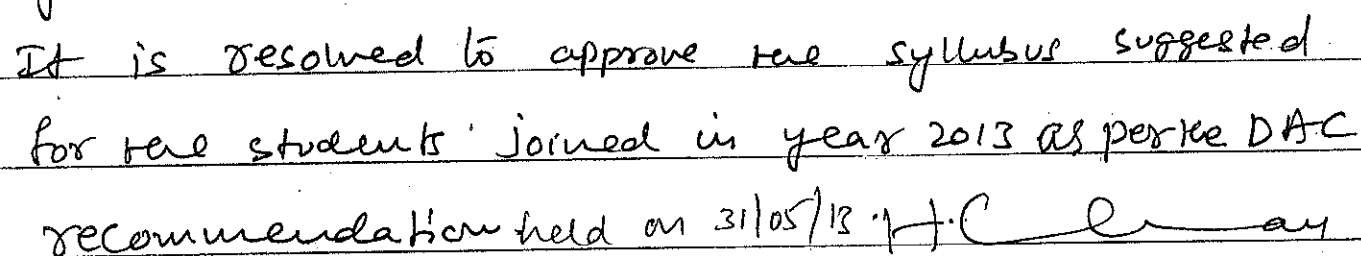 It is resolved to approve the syllubus suggested
for the students joined in year 2013 as per the DAC
recommendation held on 31/05/13.